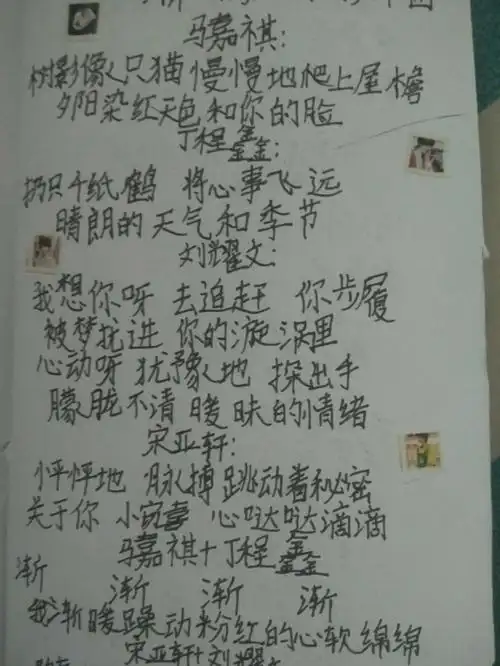 马嘉祺:
树影像只猫 慢慢地爬上屋檐
夕阳染红天色和你的脸
丁程鑫:
扔只千纸鹤 将心事飞远
晴朗的天气和季节
刘耀文:
我想你呀 去追赶 你步履
被梦托进 你的漩涡里
心动呀 犹豫地 探出手
朦胧不清 暧昧的情绪
宋亚轩:
怦怦地 脉搏跳动着秘密
关于你 小 心哒哒滴滴
马嘉祺+丁程鑫
渐 渐 渐 渐
我渐暖躁动粉红的心软绵绵
宋亚轩+刘耀文